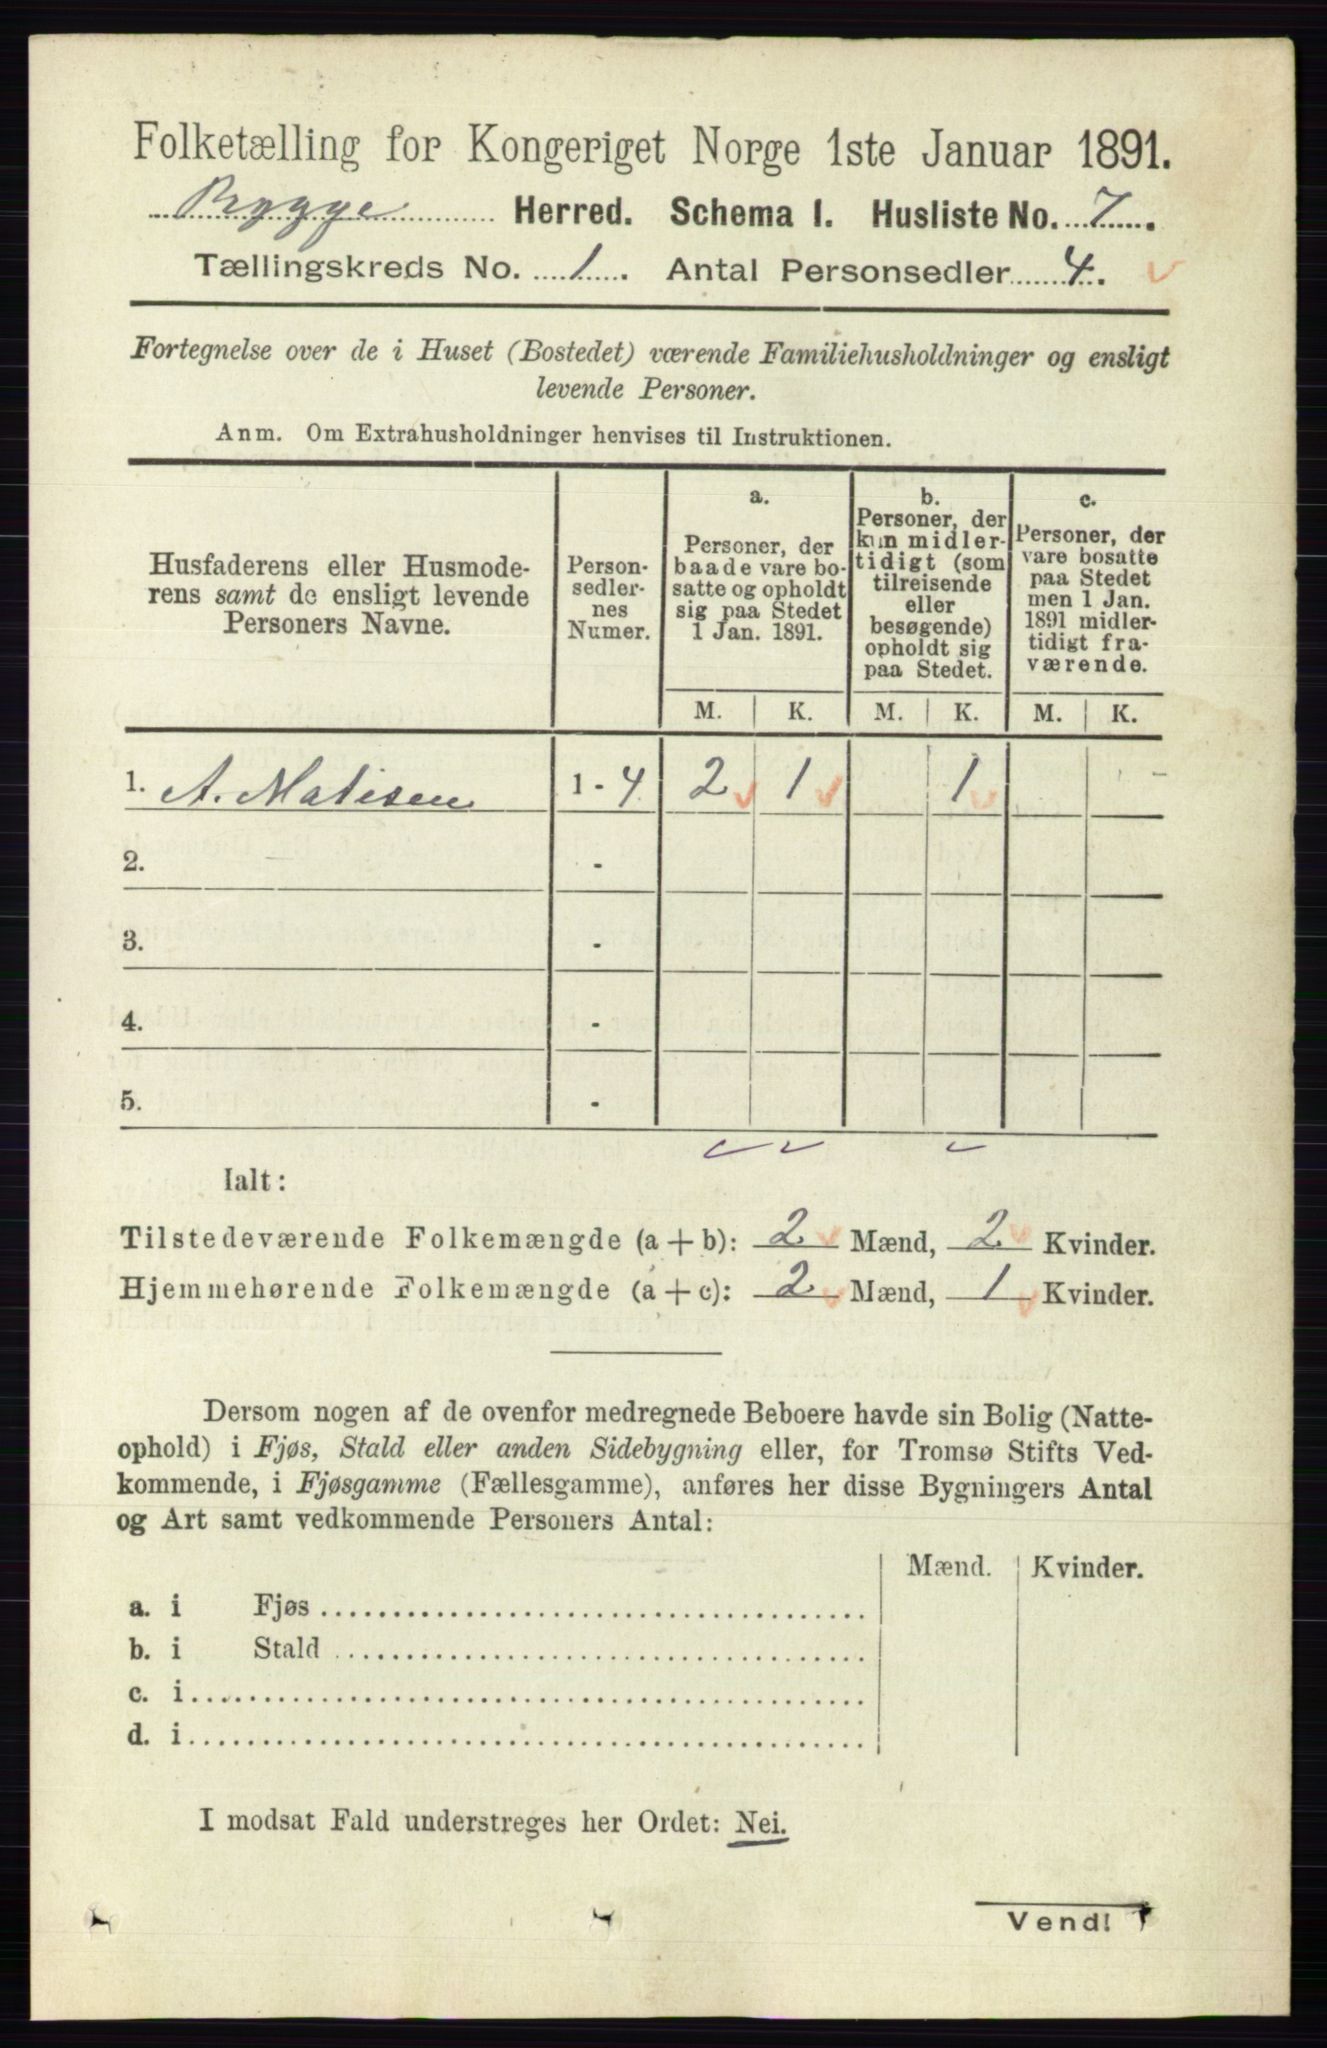 Folketælling for Kongeriget Norge 1ste Januar 1891.
Rygge Herred. Schema I. Husliste No. 7.
Tællingskreds No. 1. Antal Personsedler 4.
Fortegnelse over de i Huset (Bostedet) værende Familiehusholdninger og ensligt
levende Personer.
Anm. Om Extrahusholdninger henvises til Instruktionen.
Husfaderens eller Husmode-
rens samt de ensligt levende
Personers Navne.
Person-
sedler-
nes
Numer.
a.
Personer, der
baade vare bo-
satte og opholdt
sig paa Stedet
1 Jan. 1891.
b.
Personer, der
kun midler-
tidigt (som
tilreisende
eller
besøgende)
opholdt sig
paa Stedet.
c.
Personer, der
vare bosatte
paa Stedet
men 1 Jan.
1891 midler-
tidigt fra-
værende.
M. K. M. K. M. K.
1. A. Matisen 1 - 4 2 1 1
2. -
3. -
4. -
5. -
Ialt:
Tilstedeværende Folkemængde (a + b): 2 Mænd, 2 Kvinder.
Hjemmehørende Folkemængde (a + c): 2 Mænd, 1 Kvinder.
Dersom nogen af de ovenfor medregnede Beboere havde sin Bolig (Natte-
ophold) i Fjøs, Stald eller anden Sidebygning eller, for Tromsø Stifts Ved-
kommende, i Fjøsgamme (Fællesgamme), anføres her disse Bygningers Antal
og Art samt vedkommende Personers Antal:
Mænd. Kvinder.
a. i Fjøs
b. i Stald
c. i
d. i
I modsat Fald understreges her Ordet: Nei.
Vend!